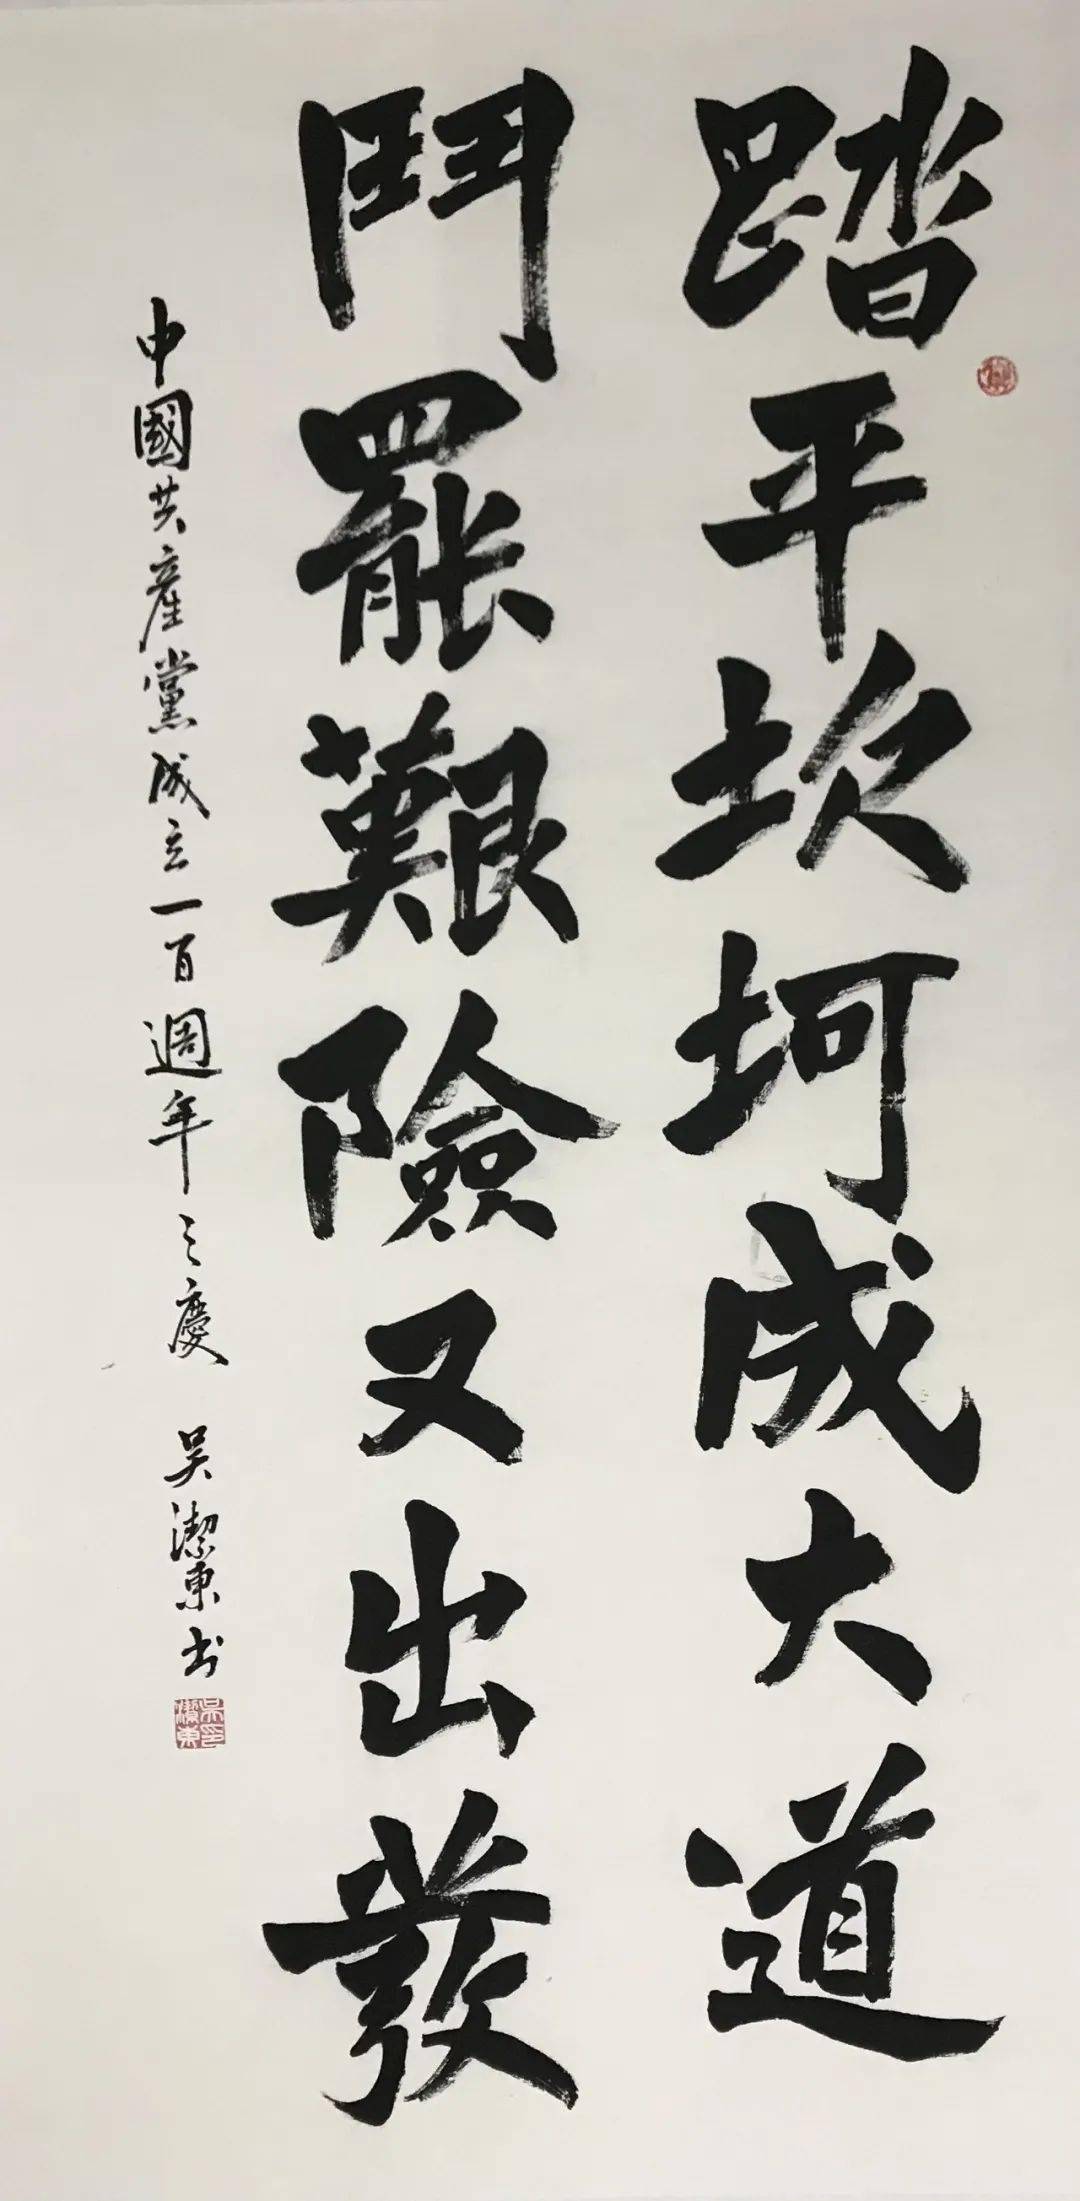 踏平坎坷成大道
鬥罷艱險又出發
中國共產黨成立一百週年之慶 吴潔東书
吴印潔東